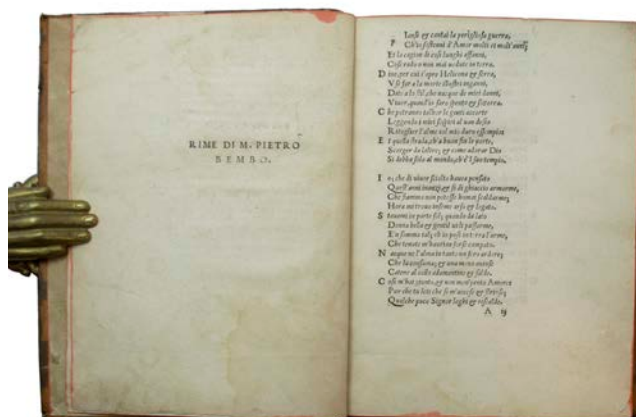 RIME DI M. PIETRO
BEMBO.
P
Iansi & cantai la perigliosa guerra,
Ch'io sostenni d'Amor molti & molt'anni,
Et la cagion di così lunghi affanni,
Cosi rada o non mai veduta in terra.
D ive, per cui s'apre Helicona & serra,
Use far a la morte illustri inganni,
Date a lo stil, che nacque de miei danni,
Viver, quand'io saro spento & sotterra.
C he potranno talhor le genti accorte
Leggendo i miei sospiri al van desio
Ritoglier l'alme col mio duro essempio:
E t quella strada, ch'a buon fin le porte,
Scorger da l'altre, & come adorar Dio
Si debba solo al mondo, ch'è 'l suo tempio.
I o, che di viver sciolto havea pensato
Quest'anni inanzi, & sì di ghiaccio armarme,
Che fiamma non potesse homai scaldarme;
Hora mi trovo insieme arso & legato.
S tavomi in parte sol; quando da lato
Donna bella & gentil vidi passarme,
Che tenute m'havrian forse campato.
N acque ne l'alma
Che la consuma; & una mano avinse
Catene al collo adamantine & salde.
C osi m'hai giunto, & non men' pento Amore;
Pur che tu lei che sì m'accese & strinse,
Qualche poco Signor leghi & riscalde.
A ij